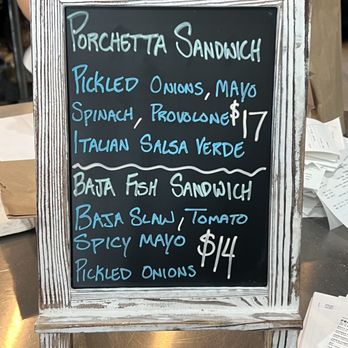 Porchetta Sandwich
Pickled Onions, Mayo
Spinach, Provolone $17
Italian Salsa Verde
Baja Fish Sandwich
Baja Slaw, Tomato
Spicy Mayo $14
Pickled Onions